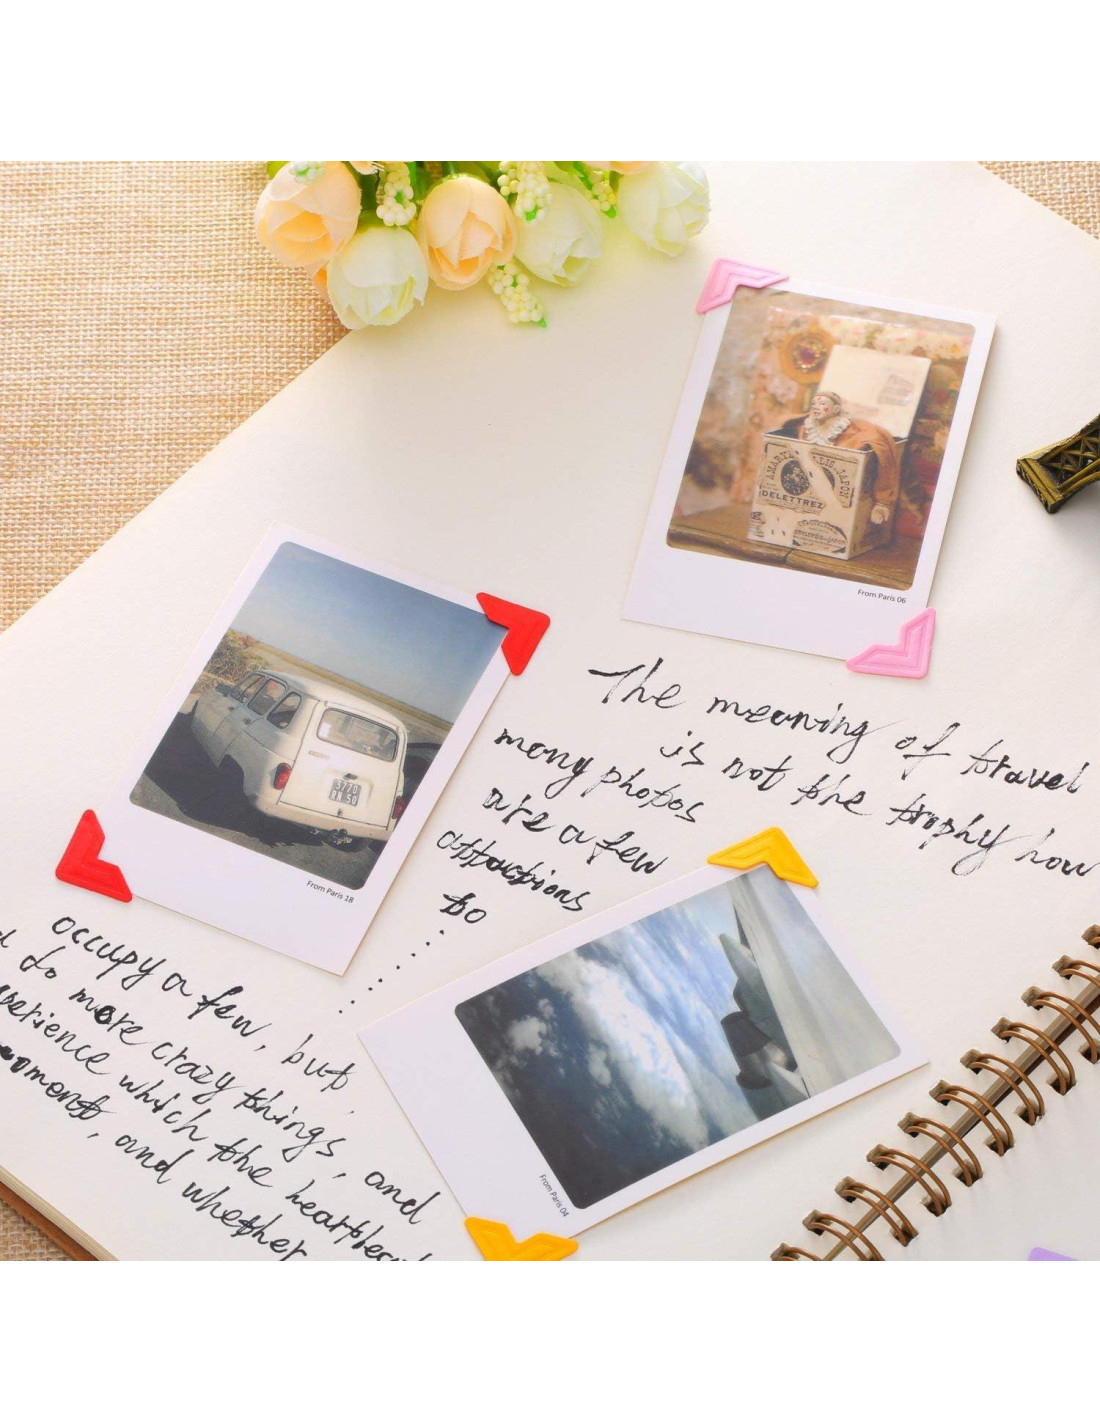 From Paris 06
DELETTREZ
The meaning of travel
is not the trophy how
many photos
are a few
attactions
to
3770
50
From Paris 18
From Paris 04
occupy a few, but
do more crazy things, and
which the
and whether